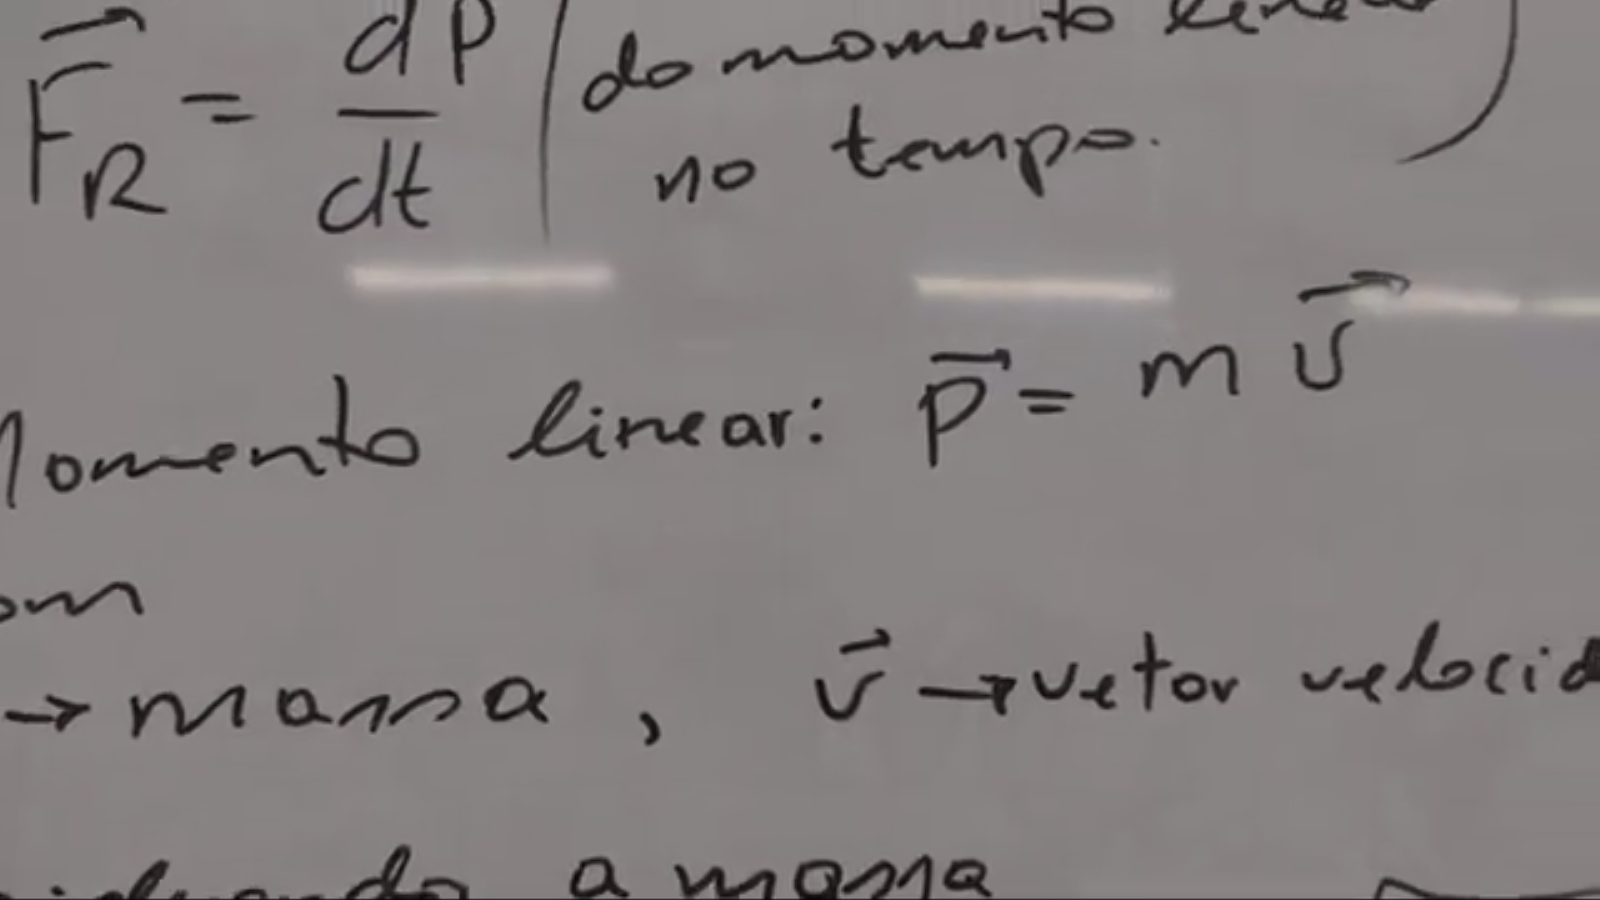 F⃗_R = dp/dt do momento linear
no tempo.
Momento linear: p⃗ = m v⃗
om
→ massa , v⃗ → vetor velocid
a massa